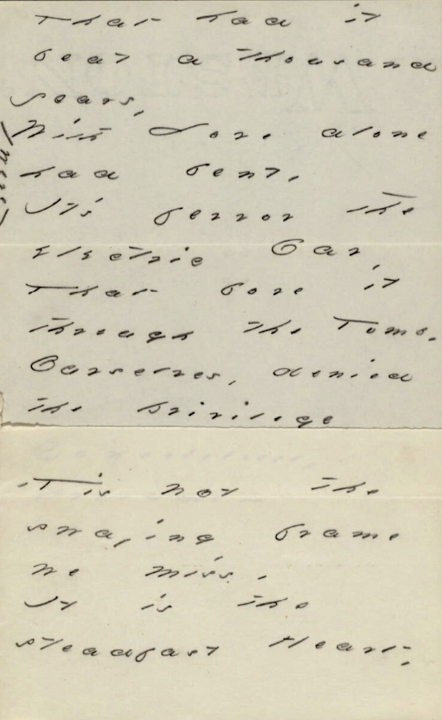 That had it
beat a thousand
years,
With Love alone
had bent,
It's fervor the
Electric Oar,
That bore it
through the Tomb.
Ourselves, denied
the privilege
It is not the
swaying frame
we miss,
It is the
steadfast Heart,